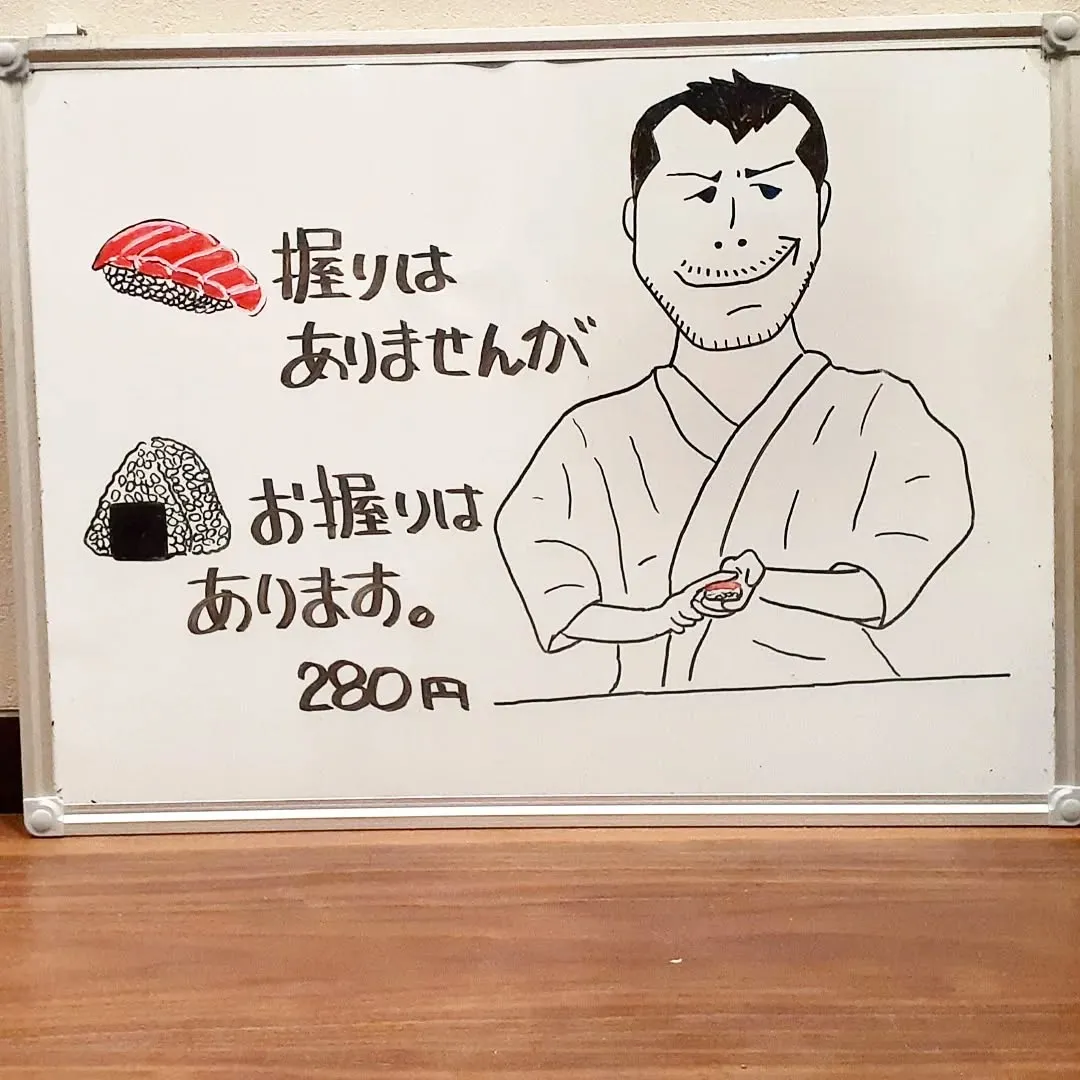 握りは
ありませんが
お握りは
あります。
280円